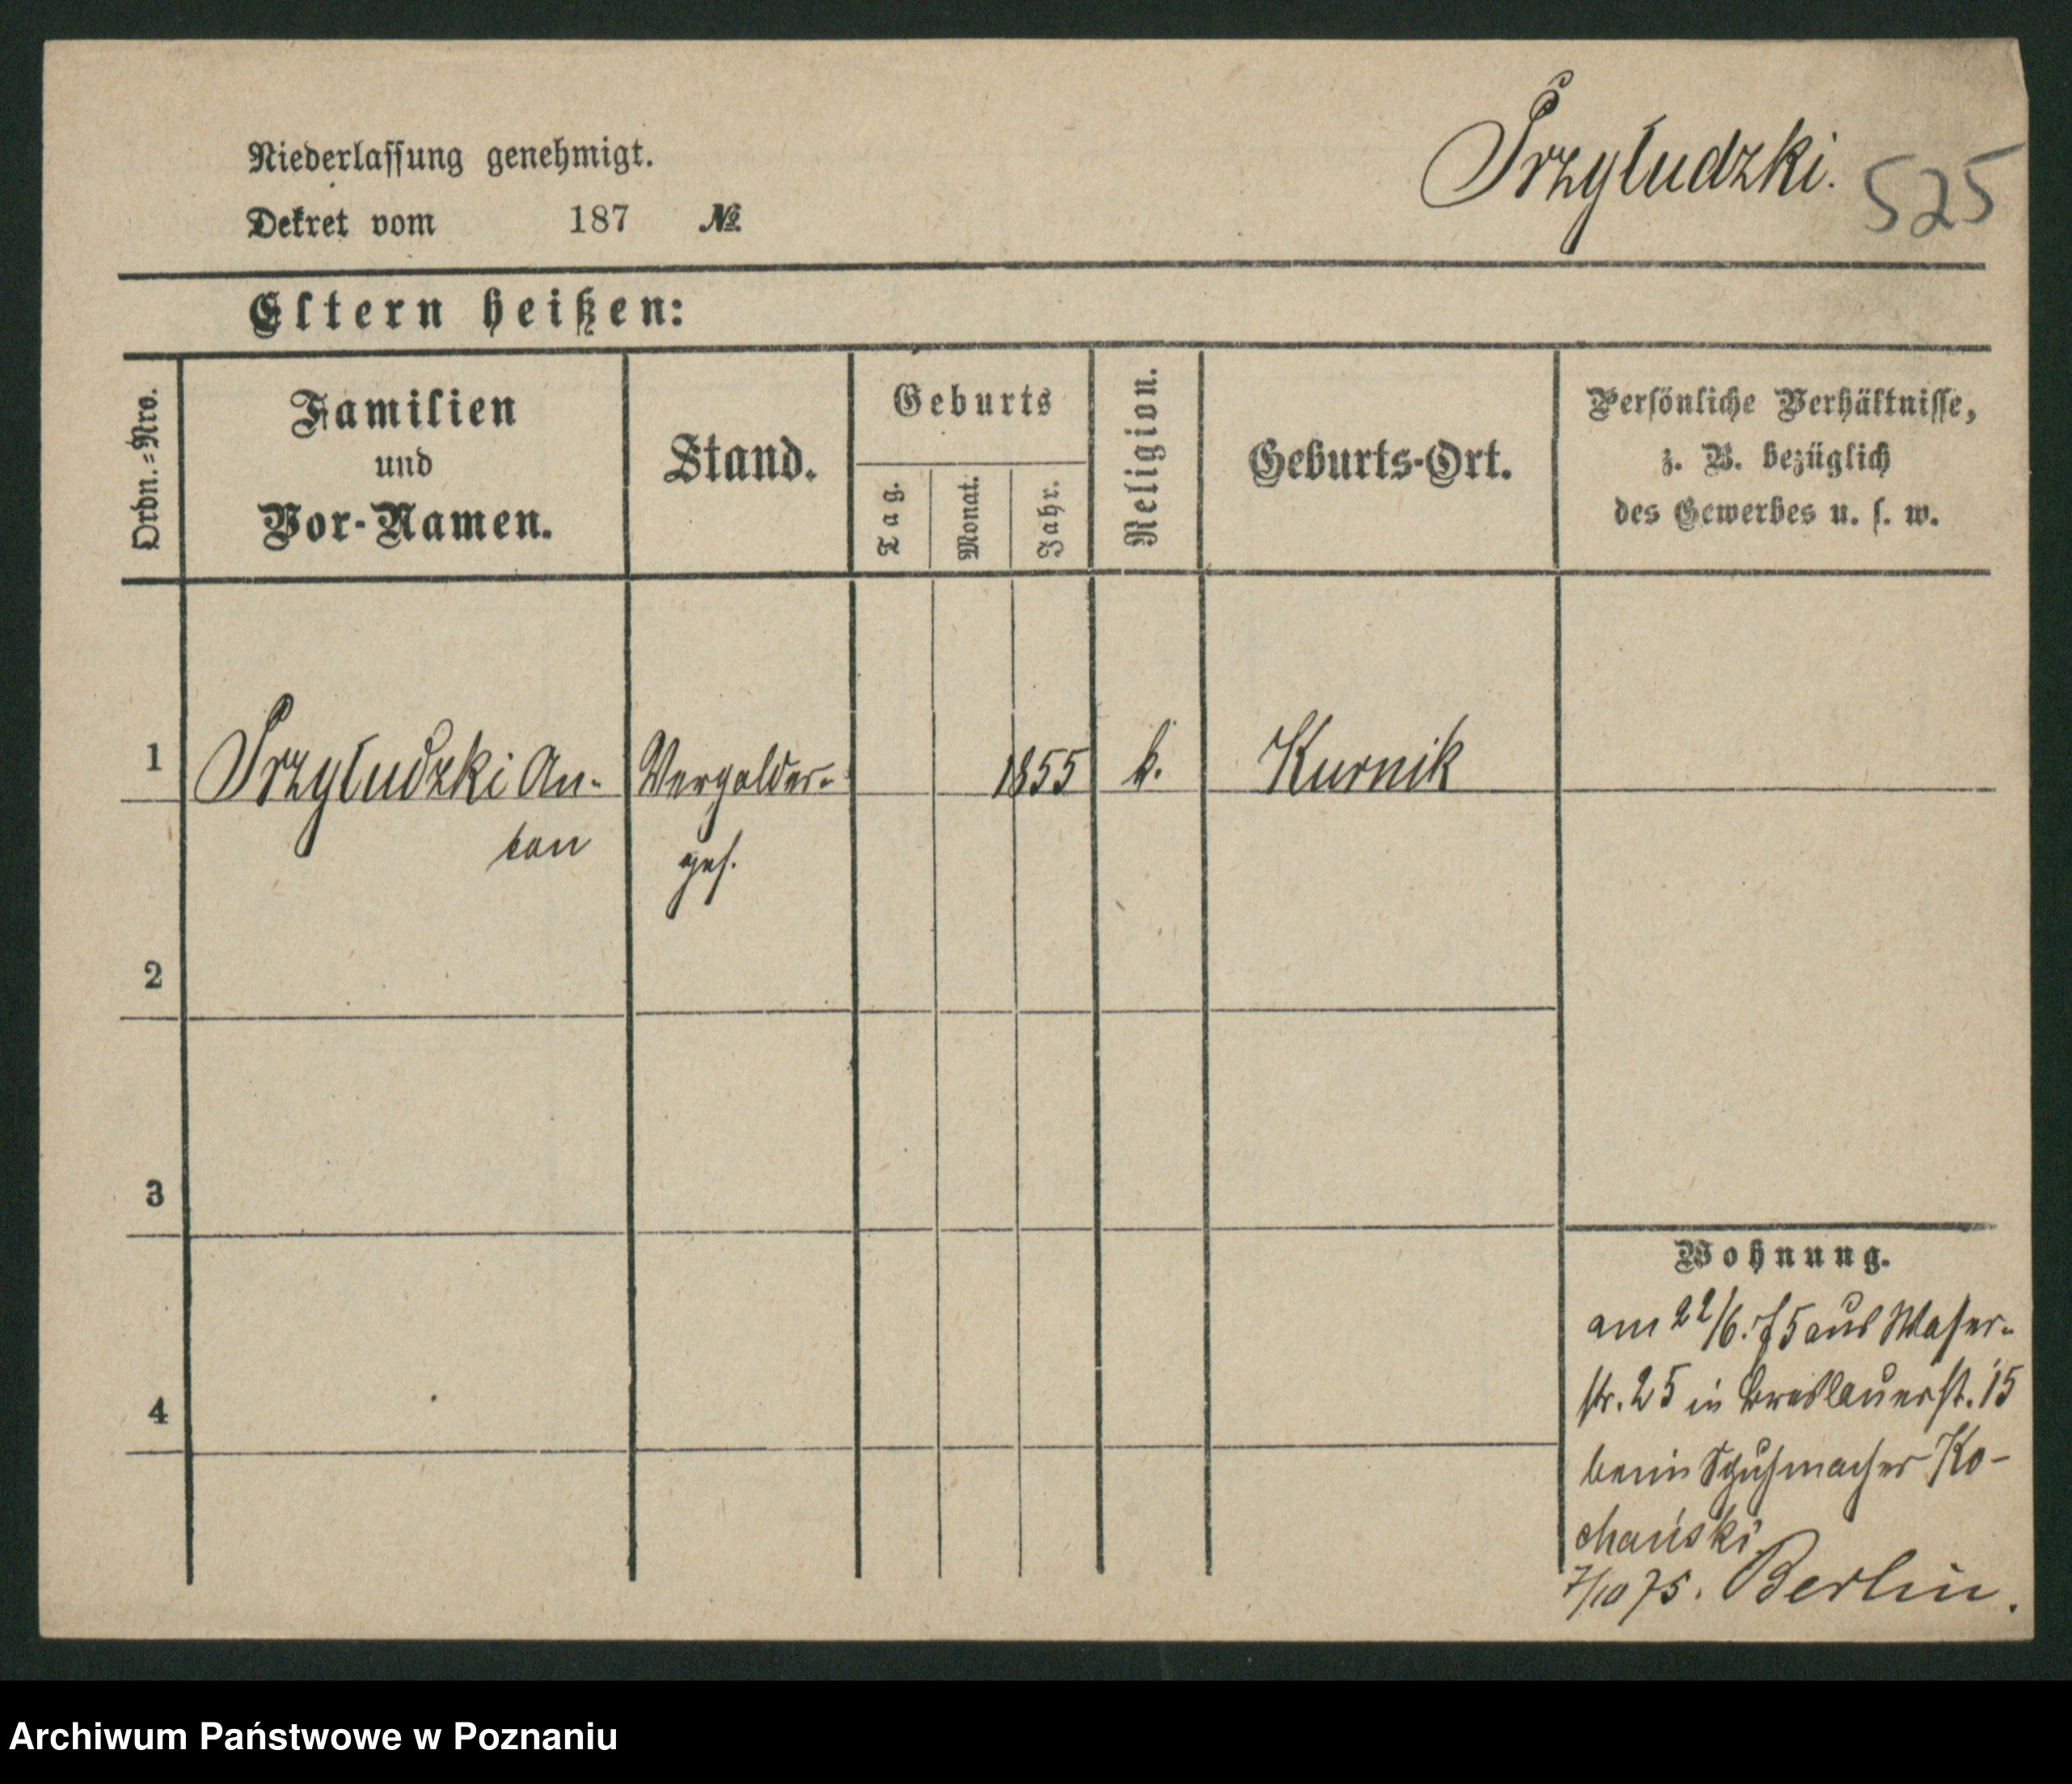 Przyłudzki. 525
Niederlassung genehmigt.
Dekret vom 187 №
Eltern heißen:
Ordn.=Nro.
Familien
und
Vor-Namen.
Stand.
Geburts
Tag.
Monat.
Jahr.
Religion.
Geburts-Ort.
Persönliche Verhältnisse,
z. B. bezüglich
des Gewerbes u. s. w.
1 Przyłudzki An- Vergolder- 1855 k. Kurnik
ton ges.
2
3
4
Wohnung.
am 22/6. 75 aus Wasser-
str. 25 in Breslauerst. 15
beim Schuhmacher Ko-
chański
7/10 75. Berlin.
Archiwum Państwowe w Poznaniu